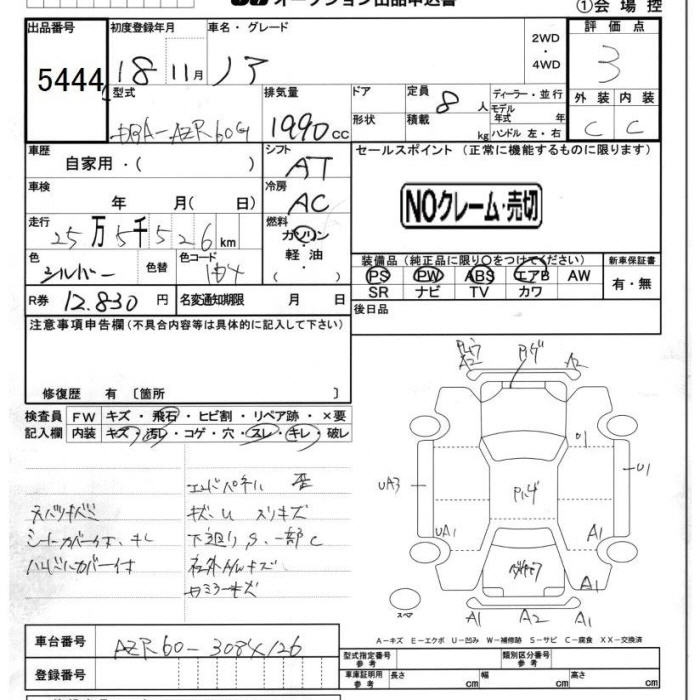 オークション出品申込書
①会場 控
出品番号 初度登録年月 車名・グレード 2WD・4WD 評価点
5444 18 11月 ノア 3
型式 排気量 ドア 定員 8人 ディーラー・並行 外装 内装
DBA-AZR60G 1990cc 形状 積載 kg モデル年式 年 C C
ハンドル 左・右
車歴 自家用・( ) シフト AT セールスポイント (正常に機能するものに限ります)
車検 年 月( 日) 冷房 AC NOクレーム・売切
走行 25万5千526km 燃料 ガソリン・軽油
装備品 (純正品に限り○をつけてください) 新車保証書
色 シルバー 色替 色コード PS PW ABS エアB AW 有・無
SR ナビ TV カワ
R券 12.830円 名変通知期限 月 日 後日品
注意事項申告欄(不具合内容等は具体的に記入して下さい)
修復歴 有 〔箇所 〕
検査員 FW キズ・飛石・ヒビ割・リペア跡・×要
記入欄 内装 キズ・汚レ・コゲ・穴・スレ・キレ・破レ
エンドパネル 歪
キズ、U スリキズ
シートカバー付、キレ 下廻りS、一部C
ハンドルカバー付
A2 A2
U1 U1
UA3 UA1 A1
A1
スペア
A1 A2 A1
A-キズ E-エクボ U-凹み W-補修跡 S-サビ C-腐食 XX-交換済
車台番号 AZR60-3084126
型式指定番号 参考 類別区分番号 参考
登録番号 車庫証明用 参考 長さ cm 幅 cm 高さ cm